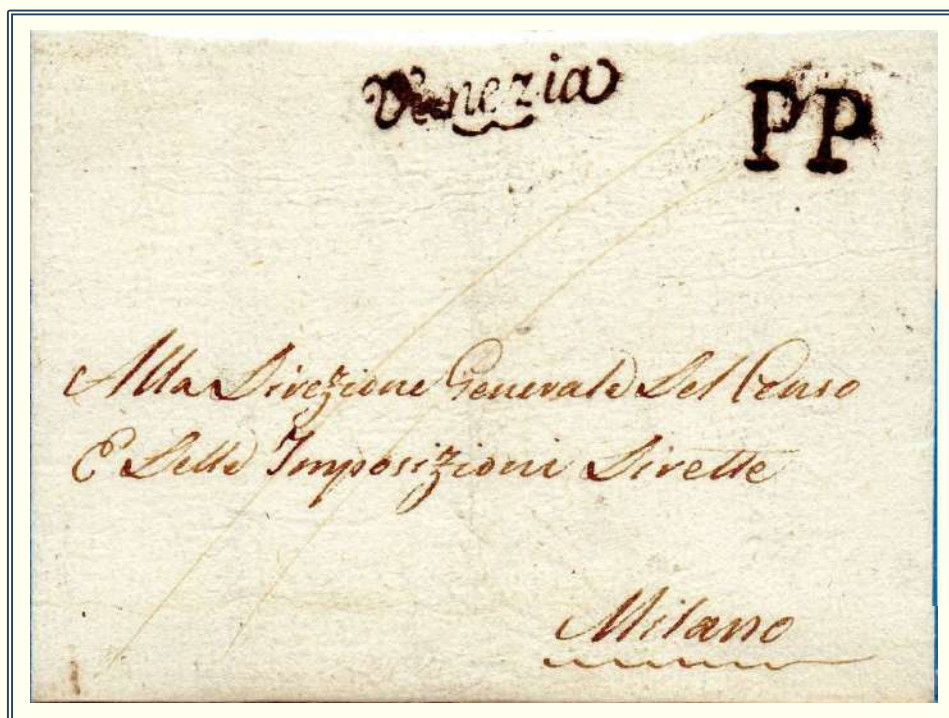 Venezia
PP
Alla Direzione Generale Del Censo
E Delle Imposizioni Dirette
Milano